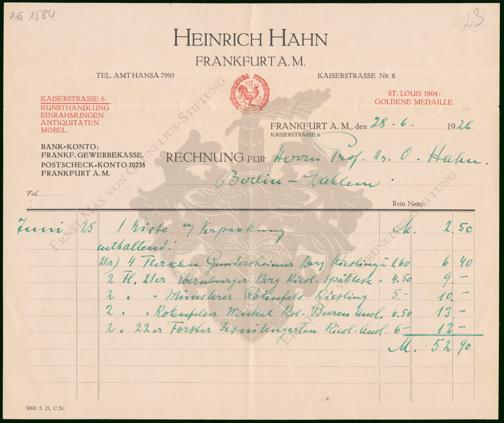 23
HEINRICH HAHN
FRANKFURT A. M.
TEL. AMT HANSA 7995
KAISERSTRASSE NR. 6
KAISERSTRASSE 6:
KUNSTHANDLUNG
EINRAHMUNGEN
ANTIQUITÄTEN
MÖBEL.
ST. LOUIS 1904:
GOLDENE MEDAILLE.
FRANKFURT A. M., den 28. 6. 1926
KAISERSTRASSE 6
BANK-KONTO:
FRANKF. GEWERBEKASSE,
POSTSCHECK-KONTO 20238
FRANKFURT A. M.
RECHNUNG FÜR Herrn Prof. Dr. O. Hahn.
Berlin-Dahlem.
Fol.
Rein Netto.
Juni 25 1 Kiste u. Verpackung, M. 2,50
enthaltend:
4 Flaschen Berg Riesling à 1,60 6,40
2 Fl. 21er Berg Riesl. Spätlese - 4,50 9 -
2 " " Münsterer Rotenfels Riesling 5 - 10, -
2 " " Rotenfelser Winkel 6,50 13, -
2 " 22er Forster Riesl. Ausl. 6 - 12 -
M. 52,90
5000. 5. 21. C.N.
ERNST-MAX VON CORNELIUS-STIFTUNG